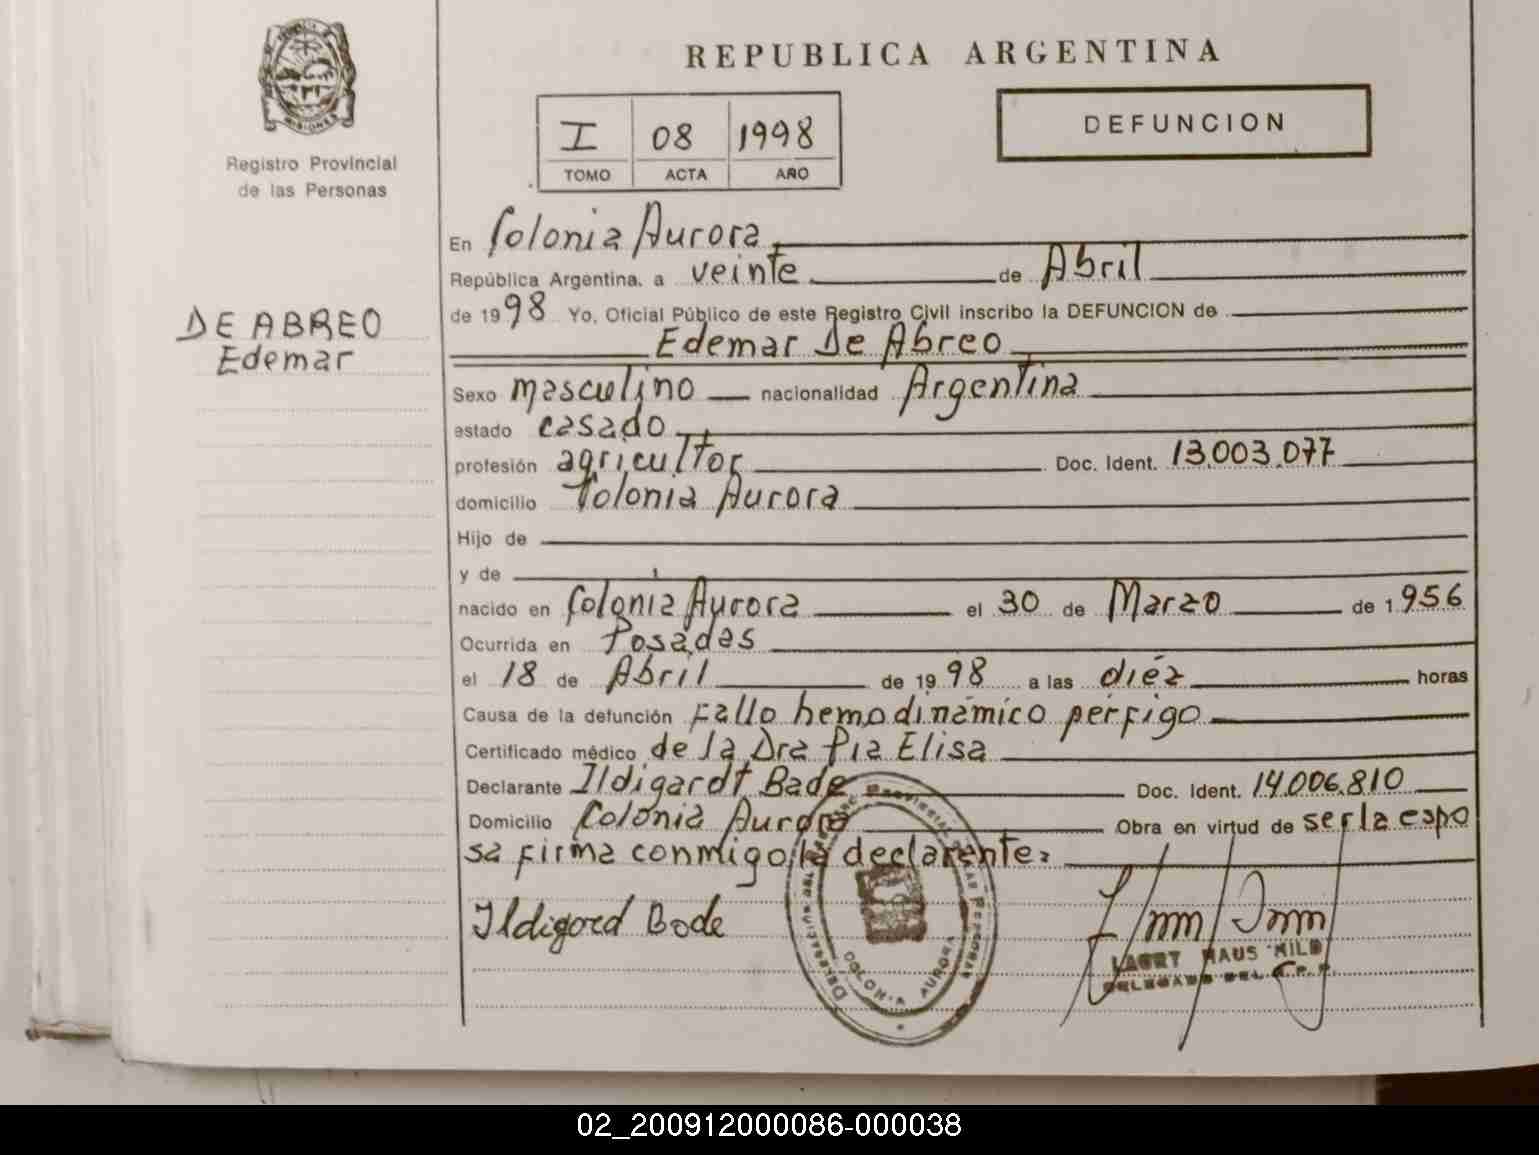 MISIONES
Registro Provincial
de las Personas
DE ABREO
Edemar
REPUBLICA ARGENTINA
I 08 1998
TOMO ACTA AÑO
DEFUNCION
En Colonia Aurora
República Argentina, a veinte de Abril
de 1998 Yo, Oficial Público de este Registro Civil inscribo la DEFUNCION de
Edemar De Abreo
Sexo masculino nacionalidad Argentina
estado casado
profesión agricultor Doc. Ident. 13.003.077
domicilio Colonia Aurora
Hijo de
y de
nacido en Colonia Aurora el 30 de Marzo de 1.956
Ocurrida en Posadas
el 18 de Abril de 1998 a las diéz horas
Causa de la defunción Fallo hemodinámico pérfigo
Certificado médico de la Dra Pia Elisa
Declarante Ildigardt Bade Doc. Ident. 14.006.810
Domicilio Colonia Aurora Obra en virtud de ser la espo
sa firma conmigo la declarente.
Ildigord Bode
COLONIA AURORA
DELEGADO DEL R.P.P.
02_200912000086-000038